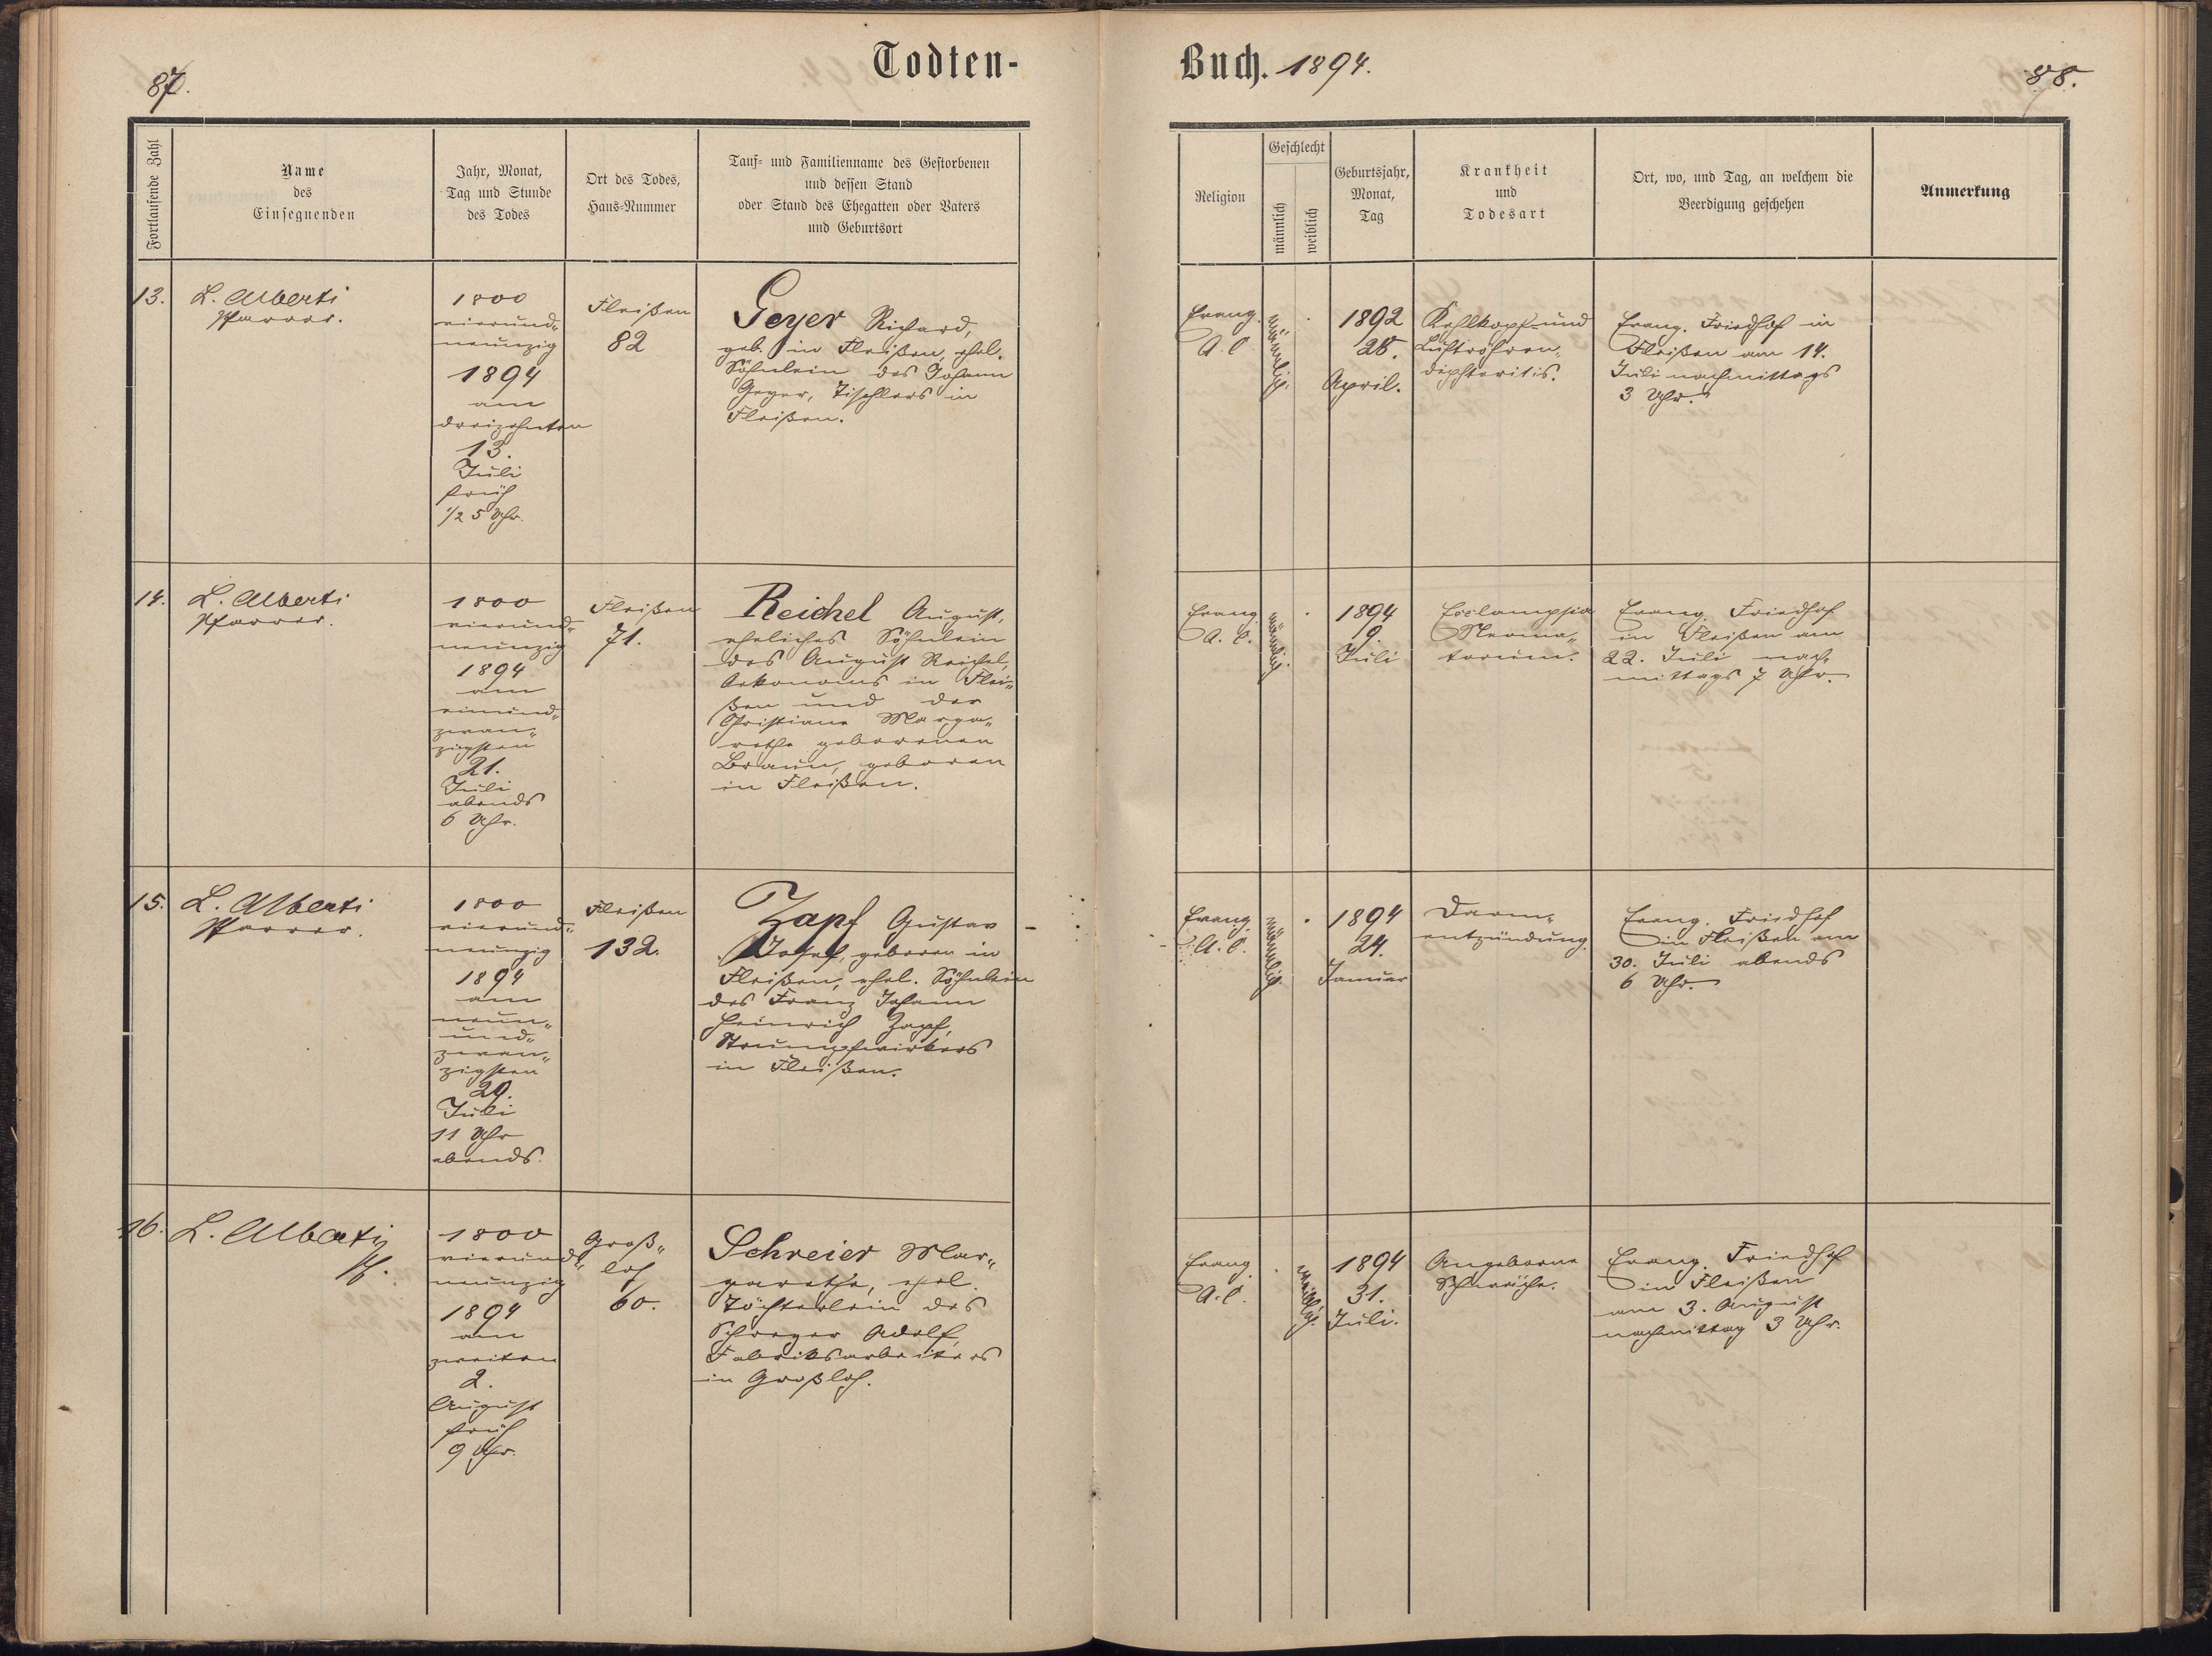 87.
Todten-
Fortlaufende Zahl
Name
des
Einsegnenden
Jahr, Monat,
Tag und Stunde
des Todes
Ort des Todes,
Haus-Nummer
Tauf- und Familienname des Gestorbenen
und dessen Stand
oder Stand des Ehegatten oder Vaters
und Geburtsort
13.
L. Alberti
Pfarrer.
1800
vierund„
neunzig
1894
am
dreizehnten
13.
Juli
früh
1/2 5 Uhr.
Fleißen
82
Geyer Richard,
geb. in Fleißen, ehel.
Söhnlein des Johann
Geyer, Tischlers in
Fleißen.
14.
L. Alberti
Pfarrer.
1800
vierund„
neunzig
1894
am
einund„
zwan„
zigsten
21.
Juli
abends
6 Uhr.
Fleißen
71.
Reichel August,
eheliches Söhnlein
des August Reichel,
Oekonoms in Flei„
ßen und der
Christiane Marga„
rethe geborenen
Braun, geboren
in Fleißen.
15.
L. Alberti
Pfarrer.
1800
vierund„
neunzig
1894
am
neun„
und„
zwan„
zigsten
29.
Juli
11 Uhr
abends.
Fleißen
132.
Zapf Gustav
Josef, geboren in
Fleißen, ehel. Söhnlein
des Franz Johann
Heinrich Zapf,
Strumpfwirkers
in Fleißen.
16.
L. Alberti
Pf.
1800
vierund„
neunzig
1894
am
zweiten
2.
August
früh
9 Uhr.
Groß„
loh
60.
Schreier Mar„
garethe, ehel.
Töchterlein des
Schreyer Adolf,
Fabriksarbeiters
in Großloh.
Buch. 1894.
88.
Religion
Geschlecht
männlich
weiblich
Geburtsjahr,
Monat,
Tag
Krankheit
und
Todesart
Ort, wo, und Tag, an welchem die
Beerdigung geschehen
Anmerkung
Evang.
A. C.
männlich.
1892
28.
April.
Kehlkopf- und
Luftröhren„
diphteritis.
Evang. Friedhof in
Fleißen am 14.
Juli nachmittags
3 Uhr.
Evang.
A. C.
männlich
1894
9.
Juli
Ecclampsia
Neona„
torum.
Evang. Friedhof
in Fleißen am
22. Juli nach„
mittags 7 Uhr.
Evang.
A. C.
männlich.
1894
24.
Januar
Darm„
entzündung.
Evang. Friedhof
in Fleißen am
30. Juli abends
6 Uhr.
Evang.
A. C.
weiblich.
1894
31.
Juli.
Angeborne
Schwäche.
Evang. Friedhof
in Fleißen
am 3. August
nachmittag 3 Uhr.